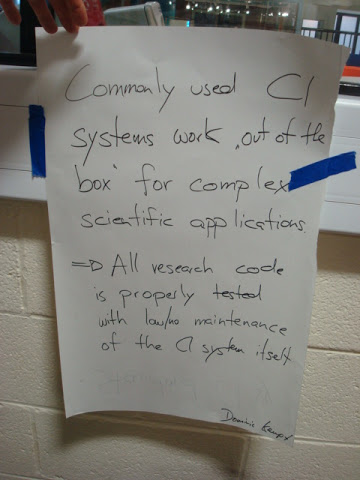 Commonly used CI
systems work "out of the
box" for complex
scientific applications.
=> All research code
is properly tested
with low/no maintenance
of the CI system itself
Dominic Kempf